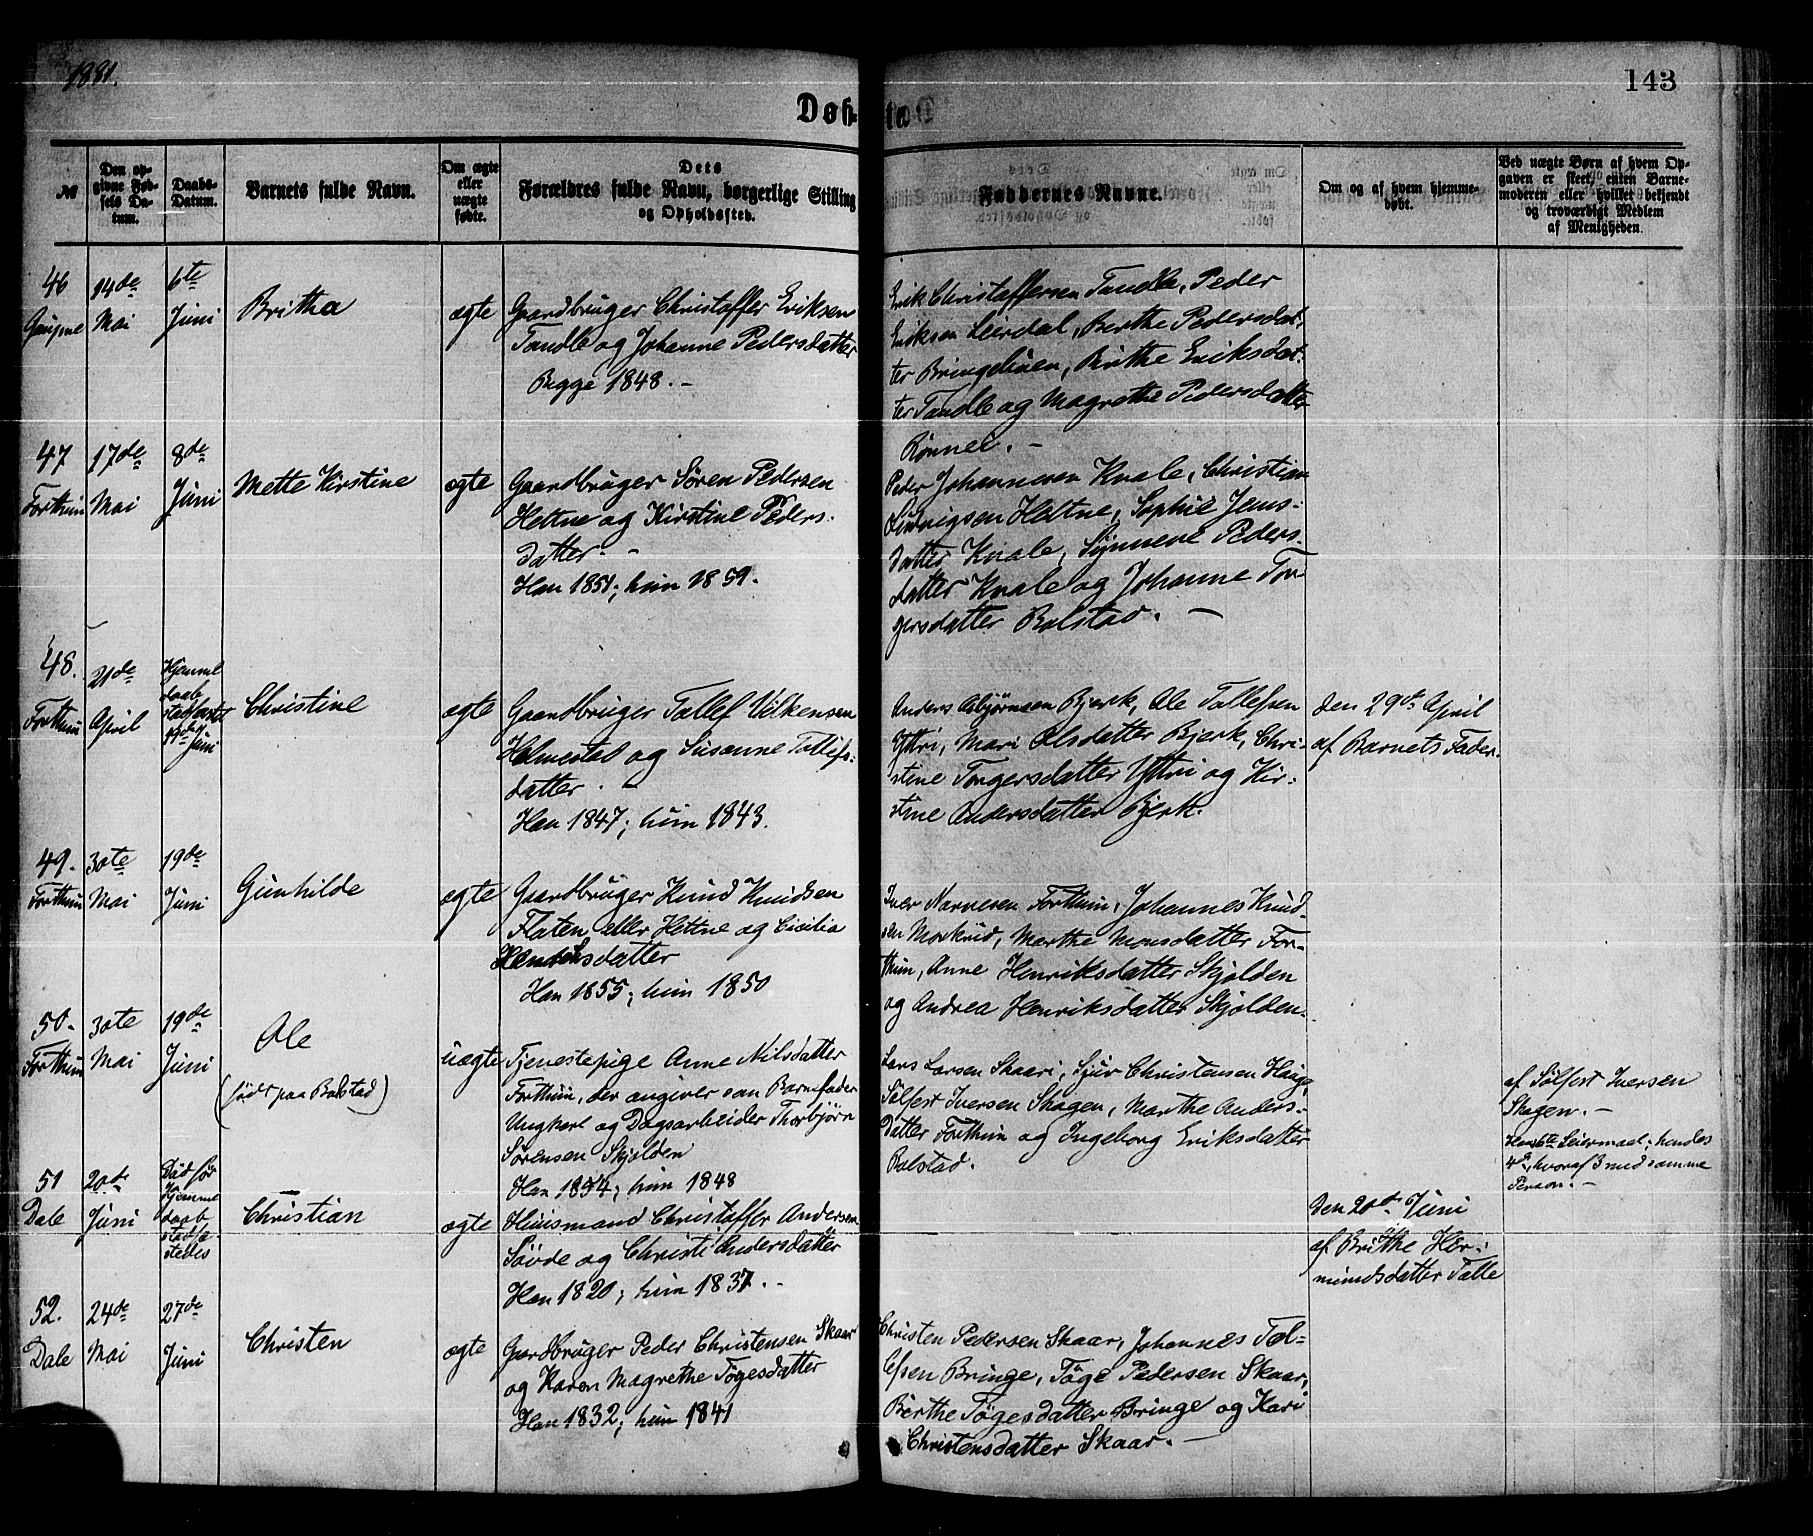 1881.
143
Døbte
№
Den opgivne Fødsels Datum.
Daabs-Datum.
Barnets fulde Navn.
Om ægte eller uægte fødte.
Dets Forældres fulde Navn, borgerlige Stilling og Opholdssted.
Faddernes Navne.
Om og af hvem hjemmedøbt.
Ved uægte Børn af hvem Opgaven er skeet, enten Barnemoderen eller hvilket bekjendt og troværdigt Medlem af Menigheden.
46
Gaupne
14de
Mai
6te
Juni
Britha
ægte
Gaardbruger Christaffer Eriksen
Tandle og Johanne Pedersdatter
Begge 1848. –
Erik Christaffersen Tandle, Peder
Eriksen Leirdal, Berthe Pedersdat-
ter Bringebøen, Birthe Eriksdat-
ter Tandle og Magrethe Pedersdatter
Rønnei. –
47
Forthun
17de
Mai
8de
Juni
Mette Kirstine
ægte
Gaardbruger Søren Pedersen
Hettne og Kirstine Peders-
datter. –
Han 1851; hun 1859.
Peder Johannesen Kvale, Christian
Ludvigsen Hettne, Sophie Jens-
datter Kvale, Synneve Peders-
datter Kvale og Johanne Tor-
gersdatter Bolstad. –
48.
Forthun
21de
April
Hjemme
daab
stadfæstet
Juni
Christine
ægte
Gaardbruger Tollef Vilkensen
Holmestad og Susanne Tollefs-
datter. –
Han 1847; hun 1843.
Anders Asbjørnsen Bjerk, Ole Tollefsen
Yttri, Mari Olsdatter Bjerk, Chri-
stine Torgersdatter Yttri og Kir-
stine Andersdatter Bjerk.
den 29de April
af Barnets Fader.
49.
Forthun
30te
Mai
19de
Juni
Gunhilde
ægte
Gaardbruger Knud Knudsen
Flaten eller Hettne og Cicilia
Henriksdatter
Han 1855; hun 1850
Iver Narvesen Forthun, Johannes Knud-
sen Morkrid, Marthe Monsdatter For-
thun, Anne Henriksdatter Skjolden
og Andrea Henriksdatter Skjolden.
50.
Forthun
30te
Mai
19de
Juni
Ole
(født paa Bolstad)
uægte
Tjenestepige Anne Nilsdatter
Forthun, der angiver som Barnefader
Ungkarl og Dagsarbeider Thorbjørn
Sørensen Skjolden
Han 1854; hun 1848
Lars Larsen Skaari, Sjur Christensen Hauge,
Sølfest Iversen Skagen, Marthe Anders-
datter Forthun og Ingeborg Eriksdatter
Bolstad.
af Sølfest Iversen
Skagen. –
Hans 6te Leiermaal; hendes
4de, hvoraf 3 med samme
Person. –
51
Dale
20de
Juni
Hjemme
daab
stadfæ-
stedes
Christian
ægte
Huusmand Christaffer Andersen
Søvde og Christi Andersdatter
Han 1820; hun 1837. –
den 20de Juni
af Brithe Her-
mundsdatter Talle
52.
Dale
24de
Mai
27de
Juni
Christen
ægte
Gardbruger Peder Christensen Skaar
og Karen Magrethe Tøgesdatter
Han 1832; hun 1841
Christen Pedersen Skaar, Johannes Tol-
lefsen Bringe, Tøge Pedersen Skaar,
Berthe Tøgesdatter Bringe og Kari
Christensdatter Skaar. –